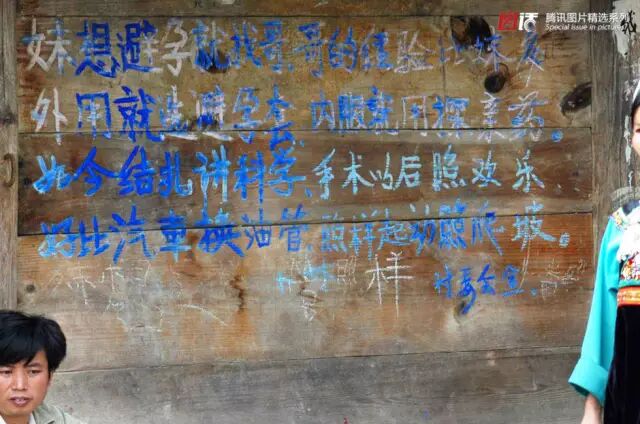 图话 腾讯图片精选系列
Special issue in pictures
妹想避孕就找哥,哥的经验比妹多
外用就选避孕套,内服就用探亲药。
如今结扎讲科学,手术以后照欢乐.
好比汽车换油管,照样起动照爬坡。
样 计育会宣.